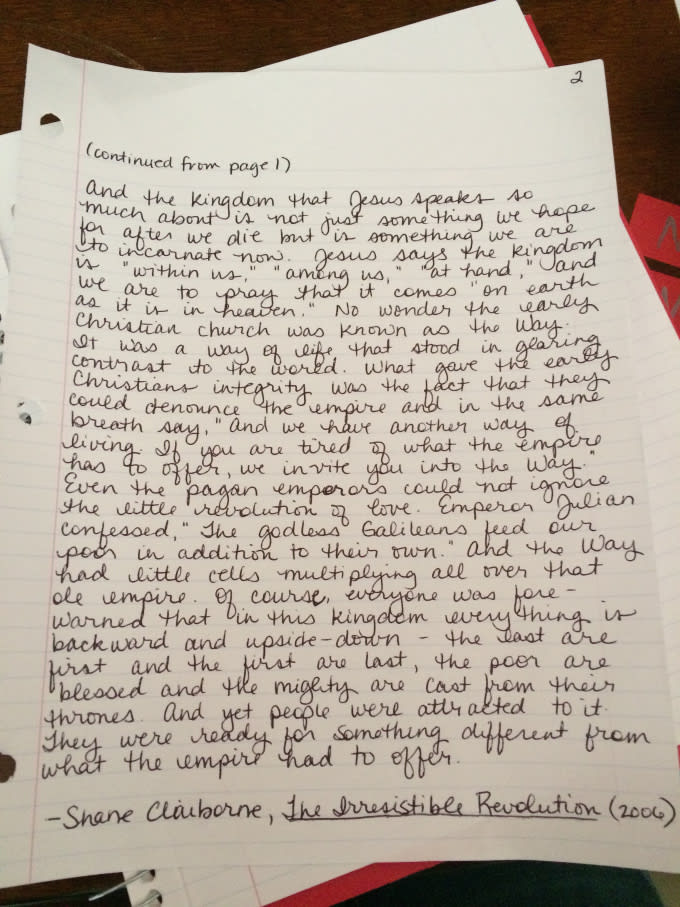 2
(continued from page 1)
And the kingdom that Jesus speaks so
much about is not just something we hope
for after we die but is something we are
to incarnate now. Jesus says the kingdom
is "within us," "among us," "at hand," and
we are to pray that it comes "on earth
as it is in heaven." No wonder the early
Christian church was known as the Way.
It was a way of life that stood in glaring
contrast to the world. What gave the early
Christians integrity was the fact that they
could denounce the empire and in the same
breath say, "And we have another way of
living. If you are tired of what the empire
has to offer, we invite you into the Way."
Even the pagan emperors could not ignore
the little revolution of love. Emperor Julian
confessed, "The godless Galileans feed our
poor in addition to their own." And the Way
had little cells multiplying all over that
ole empire. Of course, everyone was fore-
warned that in this kingdom everything is
backward and upside-down - the last are
first and the first are last, the poor are
blessed and the mighty are cast from their
thrones. And yet people were attracted to it.
They were ready for something different from
what the empire had to offer.
-Shane Claiborne, The Irresistible Revolution (2006)